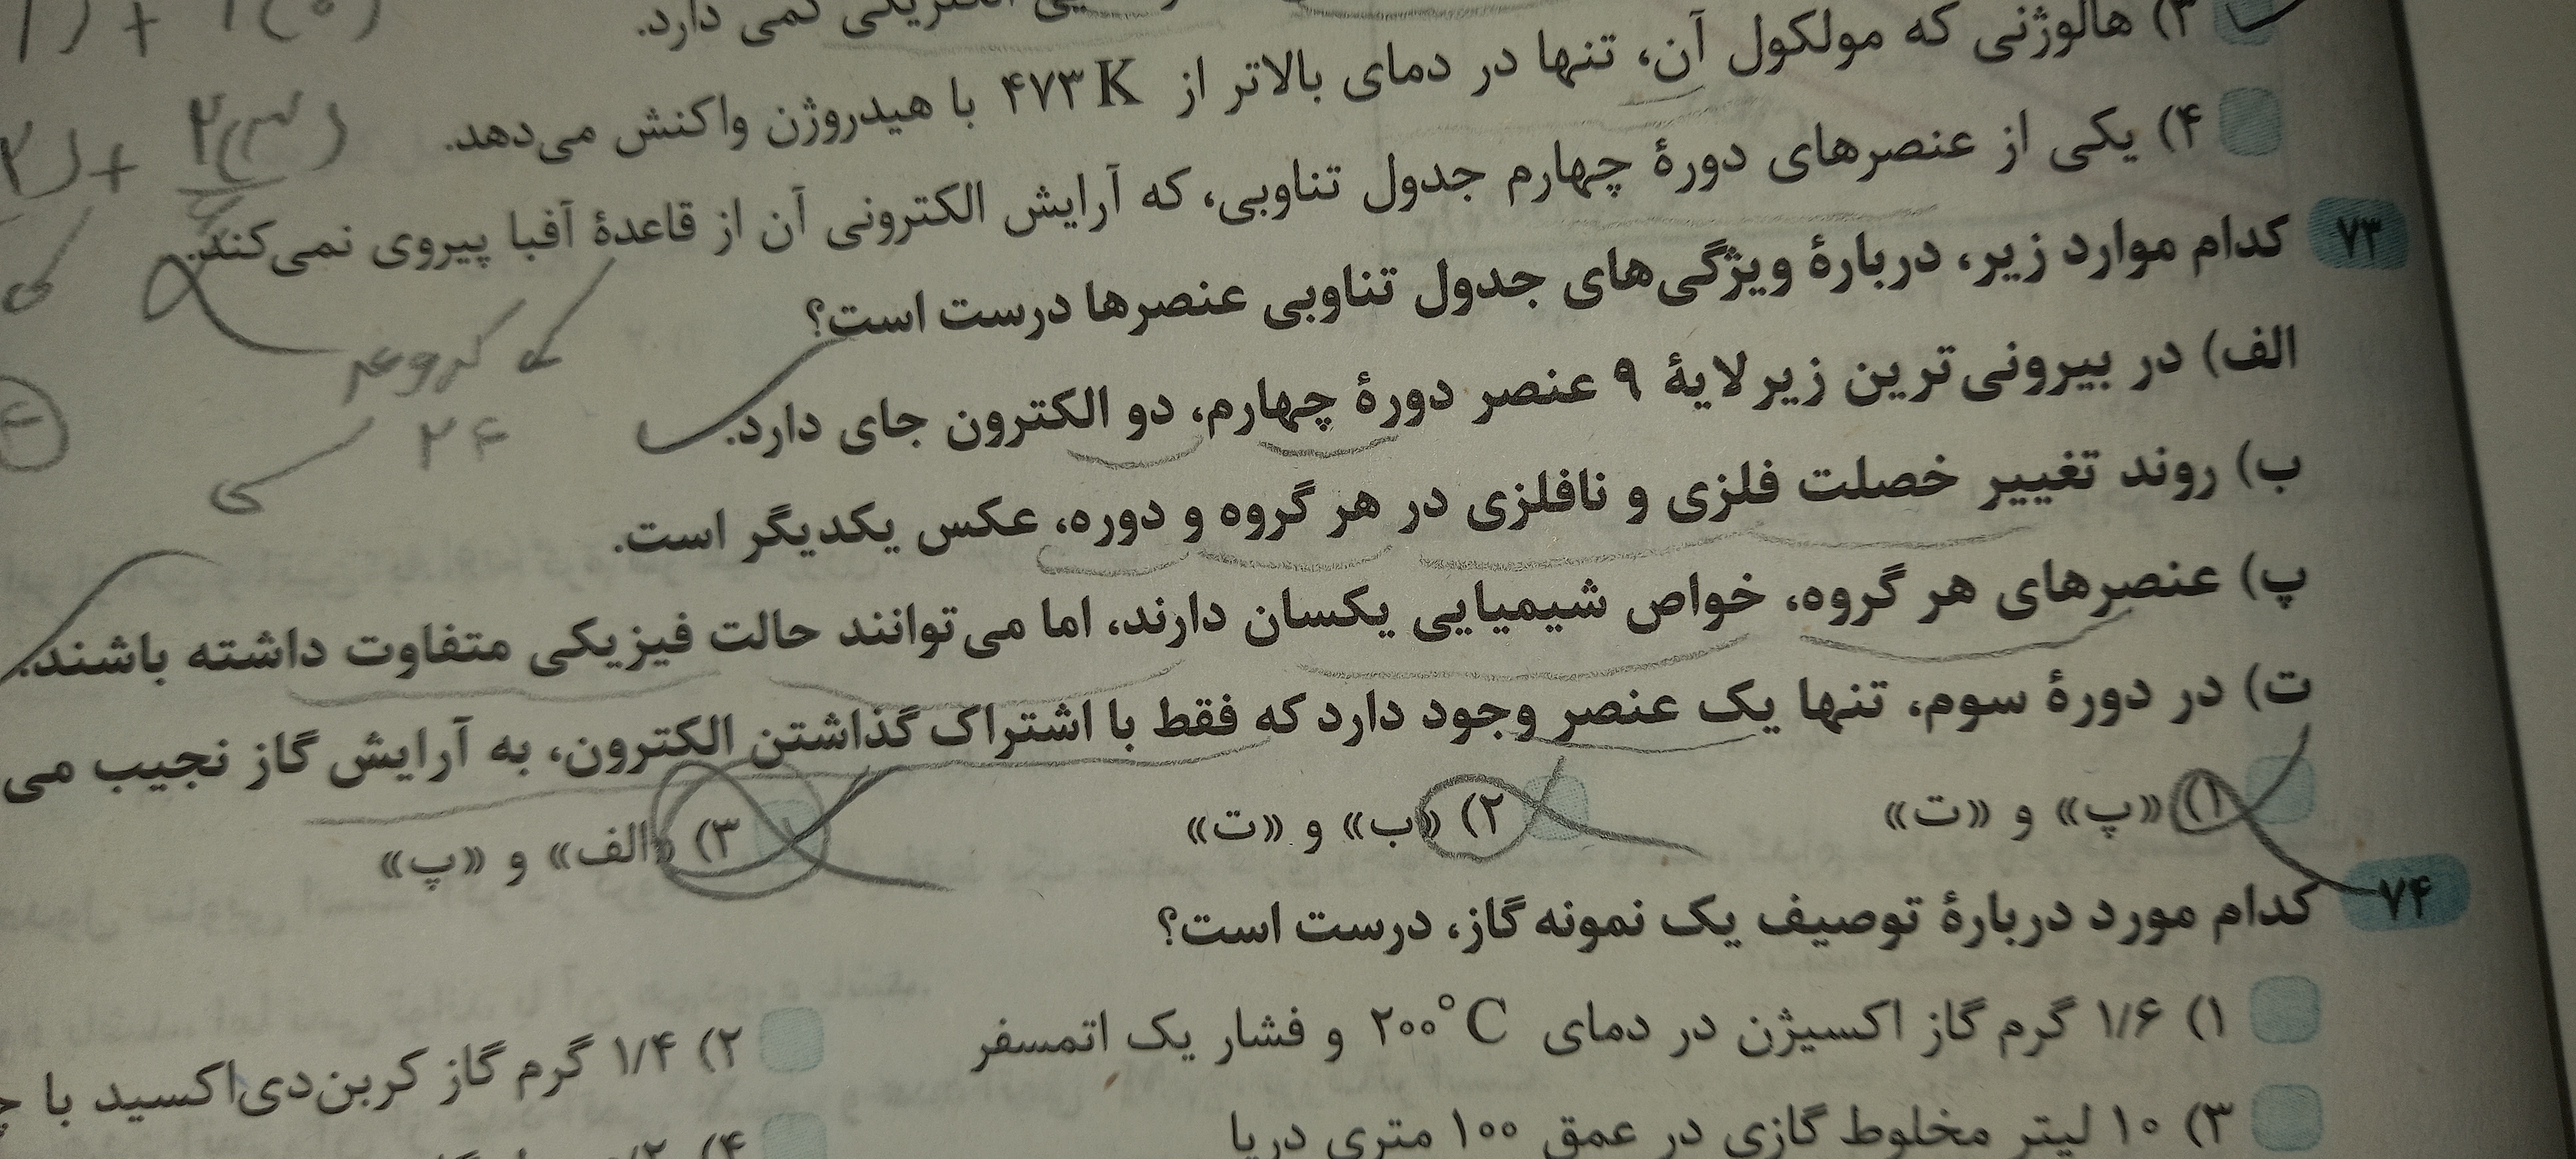 الکتریکی کمی دارد.
۳) هالوژنی که مولکول آن، تنها در دمای بالاتر از ۴۷۳K با هیدروژن واکنش می‌دهد.
۴) یکی از عنصرهای دورهٔ چهارم جدول تناوبی، که آرایش الکترونی آن از قاعدهٔ آفبا پیروی نمی‌کند.
۷۳ کدام موارد زیر، دربارهٔ ویژگی‌های جدول تناوبی عنصرها درست است؟
الف) در بیرونی‌ترین زیرلایهٔ ۹ عنصر دورهٔ چهارم، دو الکترون جای دارد.
ب) روند تغییر خصلت فلزی و نافلزی در هر گروه و دوره، عکس یکدیگر است.
پ) عنصرهای هر گروه، خواص شیمیایی یکسان دارند، اما می‌توانند حالت فیزیکی متفاوت داشته باشند.
ت) در دورهٔ سوم، تنها یک عنصر وجود دارد که فقط با اشتراک گذاشتن الکترون، به آرایش گاز نجیب می
۱) «پ» و «ت» ۲) «ب» و «ت» ۳) «الف» و «پ»
۷۴ کدام مورد دربارهٔ توصیف یک نمونه گاز، درست است؟
۱) ۱/۶ گرم گاز اکسیژن در دمای ۲۰۰°C و فشار یک اتمسفر ۲) ۱/۴ گرم گاز کربن‌دی‌اکسید با
۳) ۱۰ لیتر مخلوط گازی در عمق ۱۰۰ متری دریا ۴)
۲۴